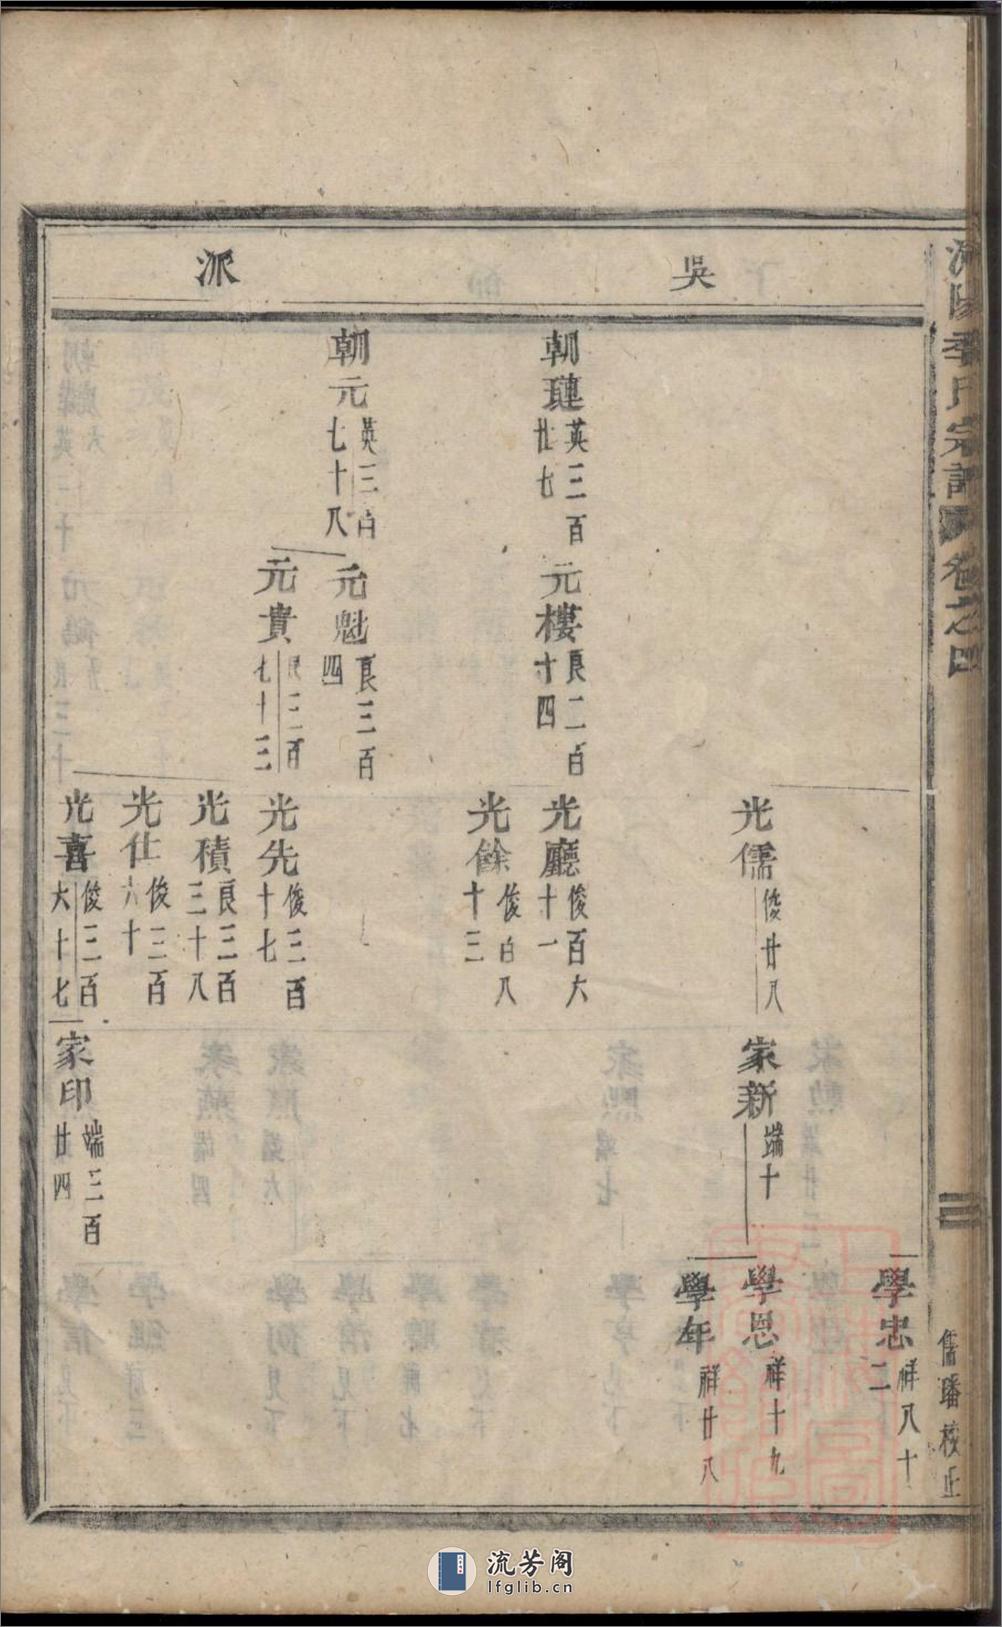 季氏宗譜
卷之四
儒璠校正
吳
派
朝璉 英三百廿七
朝元 英三百七十八
元樓 良二百十四
元魁 良三百四
元貴 良三百七十三
光儒 俊廿八
光廳 俊百六十一
光餘 俊百八十三
光先 俊三百十七
光積 良三百三十八
光仕 俊三百六十
光喜 俊三百六十七
家新 端十
家印 端三百廿四
學忠 祥八十二
學恩 祥十九
學年 祥廿八
流芳阁
lfglib.cn